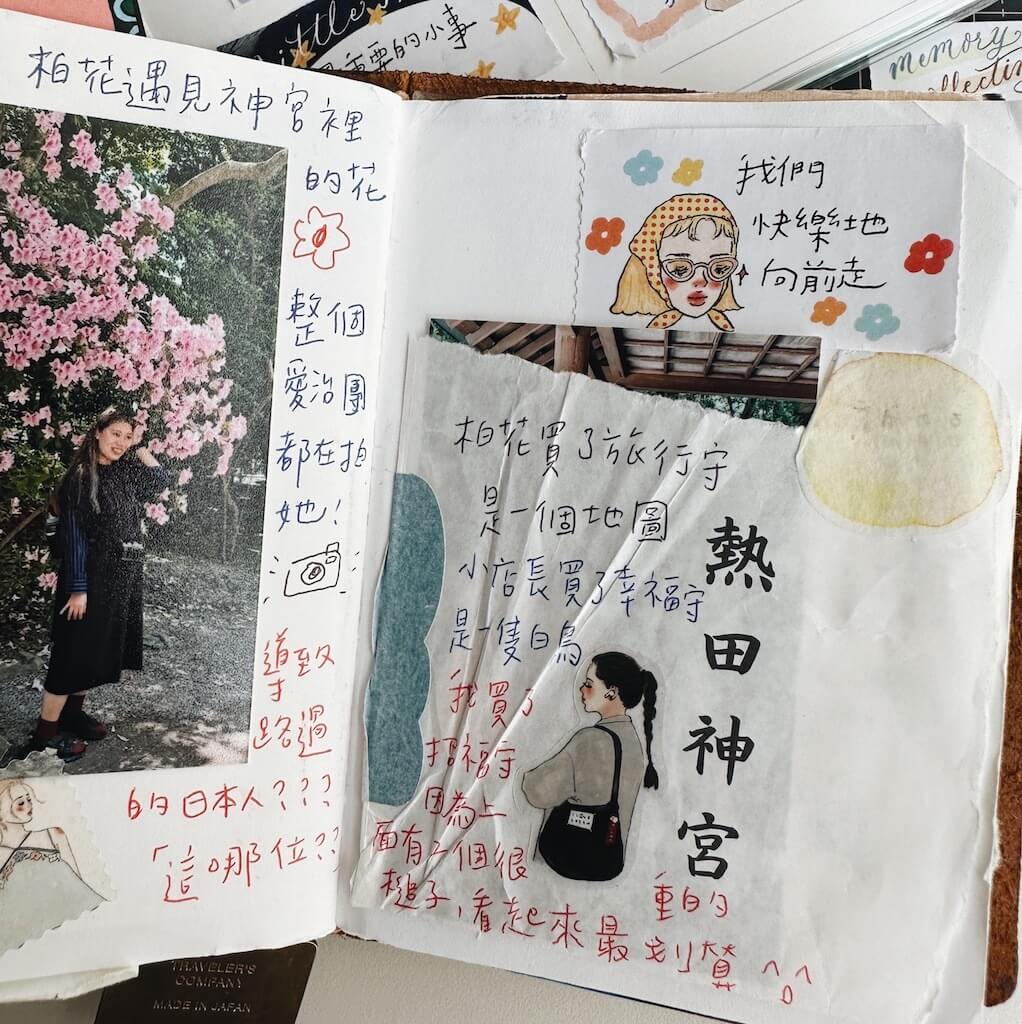 柏花遇見神宮裡
的花
整個
愛治團
都在拍
她!
導致
路過
的日本人???
「這哪位??
我們
快樂地
向前走
柏花買了旅行守
是一個地圖
小店長買了幸福守
是一隻白鳥
我買了
招福守
因為上
面有一個很
重的
槌子,看起來最划算 ^0^
熱田神宮
重要的小事
memory
TRAVELER'S
COMPANY
MADE IN JAPAN